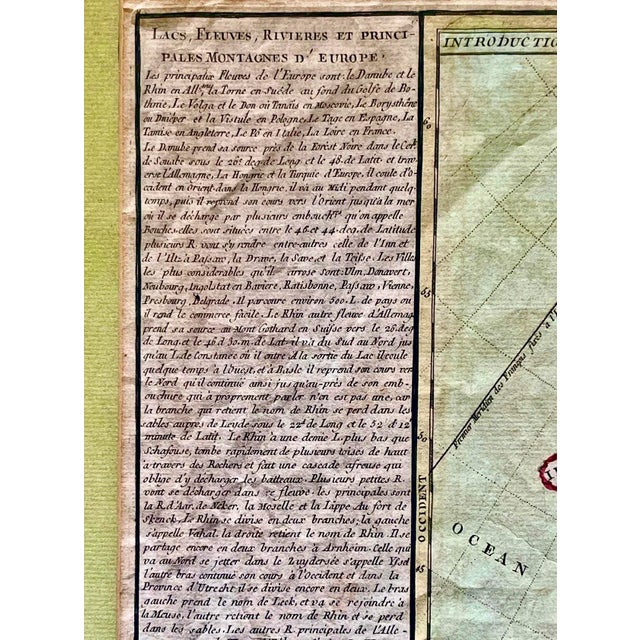 LACS, FLEUVES, RIVIERES ET PRINCI-
PALES MONTAGNES D'EUROPE.
Les principaux Fleuves de l'Europe sont: le Danube et le
Rhin en All.gne la Torne en Suéde au fond du Golfe de Bo-
thnie, Le Volga et le Don où Tanais en Moscovie, Le Borysthéne
ou Dniéper et la Vistule en Pologne, Le Tage en Espagne, La
Tamise en Angleterre, Le Pô en Italie, La Loire en France.
Le Danube prend sa source près de la Forest Noire dans le Cerk
de Souabe sous le 26e deg. de Long. et le 48. de Latit. et trav-
erse l'Allemagne, La Hongrie et la Turquie d'Europe, il coule d'oc-
cident en Orient dans la Hongrie, il va au Midi pendant quelq.
temps, puis il reprend son cours vers l'Orient jusqu'à la mer
où il se décharge par plusieurs embouch.res qu'on appelle
Bouches. elles sont situées entre le 46. et 44. deg. de Latitude
plusieurs R. vont s'y rendre entre-autres celle de l'Inn et
de l'Iltz à Passaw, la Drave, la Save, et la Teisse. Les Villes
les plus considerables qu'il arrose sont: Ulm, Donavert,
Neubourg, Ingolstat en Baviere, Ratisbonne, Passaw, Vienne,
Presbourg, Belgrade. Il parcoure environ 500. L. de pays ou
il rend le commerce facile. Le Rhin autre fleuve d'Allemag
prend sa source au Mont Gothard en Suisse vers le 26. deg
de Long. et le 46. d 30. m. de Lat. il va du Sud au Nord jus
qu'au L. de Constance où il entre. A la sortie du Lac il coule
quelque temps à l'Ouest, et à Basle il reprend son cours ver
le Nord qu'il continue ainsi jusqu'au-près de son emb-
ouchure qui à proprement parler n'en est pas une, car
la branche qui retient le nom de Rhin se perd dans les
sables auprès de Leyde sous le 22d. de Long. et le 52. d 12'
minute de Latit. Le Rhin a une demie L. plus bas que
Schafouse, tombe rapidement de plusieurs toises de haut
à travers des Rochers et fait une cascade afreuse qui
oblige d'y décharger les batteaux. Plusieurs petites R.
vont se décharger dans ce fleuve. les principales sont
la R. d'Aar, de Neker, la Moselle et la Lippe. Au fort de
Skenck, Le Rhin se divise en deux branches; la gauche
s'appelle Vahal. la droite retient le nom de Rhin. Il se
partage encore en deux branches à Arnheim. Celle qui
va au Nord se jetter dans le Zuydersée s'appelle Yssel
l'autre bras continue son cours à l'Occident et dans la
Province d'Utrect il se divise encore en deux. Le bras
gauche prend le nom de Leck, et va se rejoindre à
la Meuse, l'autre retient le nom de Rhin et se perd
dans les sables. Les autres R. principales de l'Alle-
INTRODUCTIO
60
55
50
45
OCCIDENT
OCEAN
Premier Meridien des François fixés à l'I